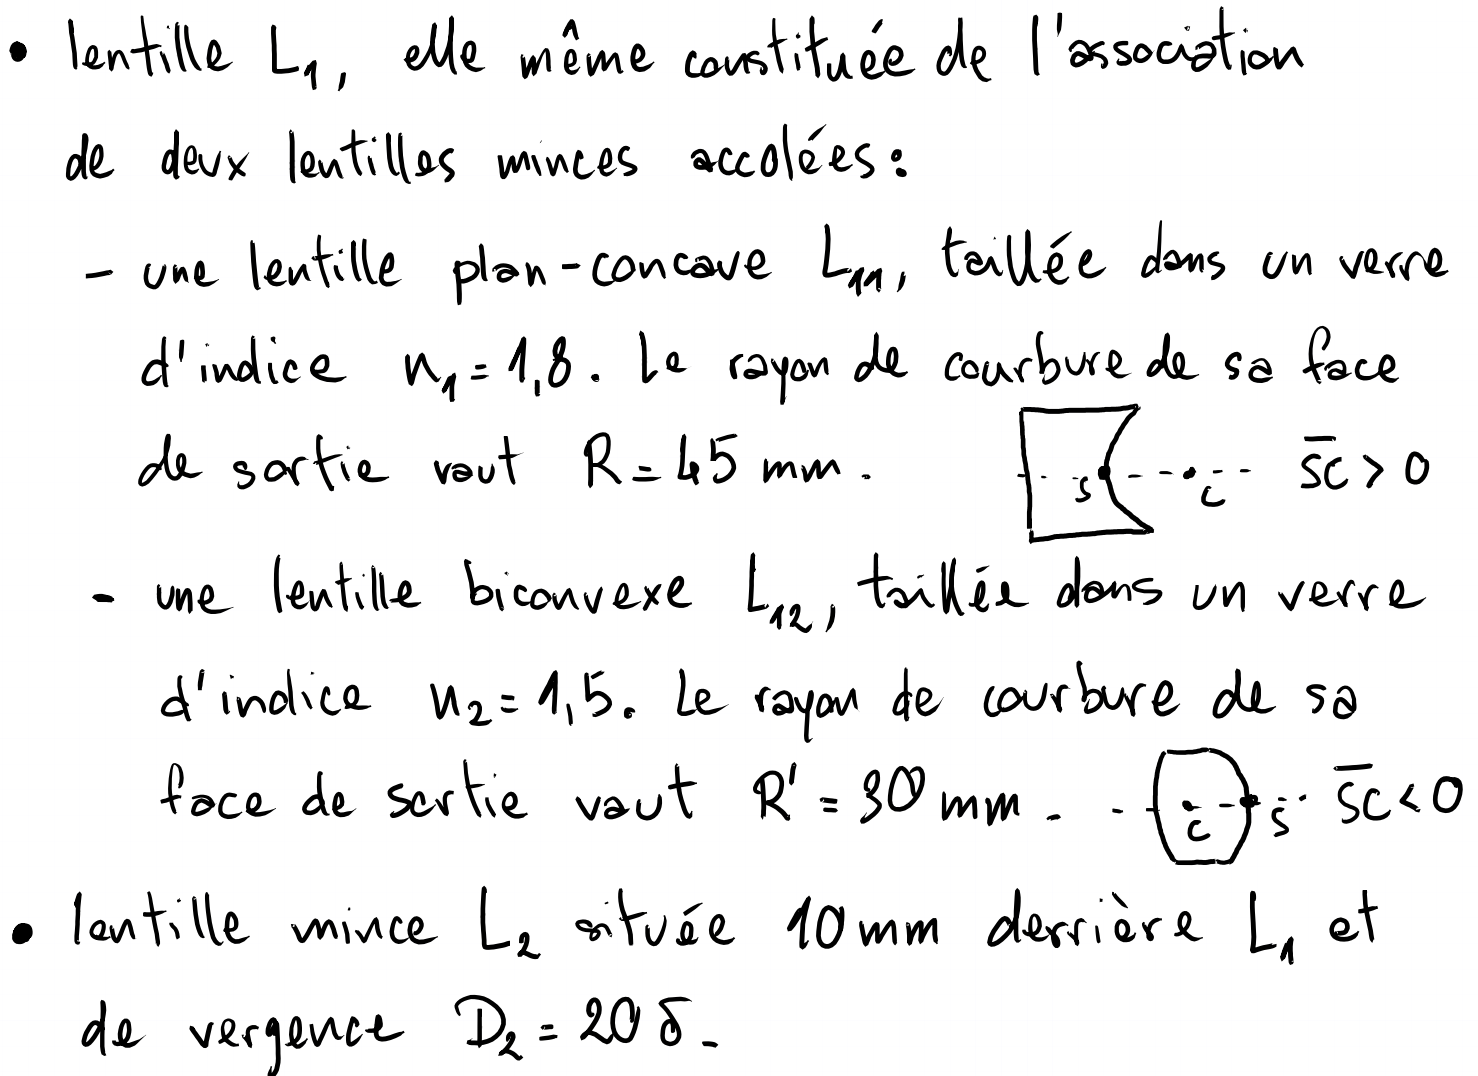 • lentille L₁, elle même constituée de l'association
de deux lentilles minces accolées :
- une lentille plan-concave L₁₁, taillée dans un verre
d'indice n₁ = 1,8. Le rayon de courbure de sa face
de sortie vaut R = 45 mm. S C S̅C̅ > 0
- une lentille biconvexe L₁₂, taillée dans un verre
d'indice n₂ = 1,5. Le rayon de courbure de sa
face de sortie vaut R' = 30 mm. C S S̅C̅ < 0
• lentille mince L₂ située 10 mm derrière L₁ et
de vergence D₂ = 20 δ.